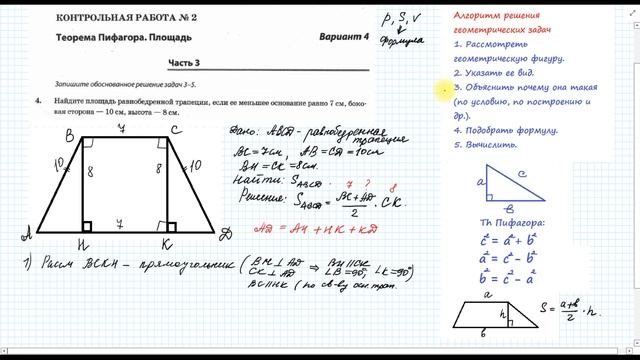 КОНТРОЛЬНАЯ РАБОТА № 2
Теорема Пифагора. Площадь
Вариант 4
Часть 3
Запишите обоснованное решение задач 3–5.
4. Найдите площадь равнобедренной трапеции, если ее меньшее основание равно 7 см, боко-
вая сторона — 10 см, высота — 8 см.
P, S, V
формула
B 7 C
10 8 8 10
7
A H K D
Дано: ABCD - равнобедренная
трапеция
BC = 7см, AB = CD = 10см
BH = CK = 8см.
Найти: S ABCD.
7 ? 8
Решение: S ABCD = BC + AD / 2 · CK.
AD = AH + HK + KD
1) Рассм BCKH - прямоугольник (BH ⊥ AD
CK ⊥ AD ⇒ BH || CK
∠B = 90°, ∠K = 90°)
BC || HK (по св-ву осн. трап.
Алгоритм решения
геометрических задач
1. Рассмотреть
геометрическую фигуру.
2. Указать ее вид.
3. Объяснить почему она такая
(по условию, по построению и
др.).
4. Подобрать формулу.
5. Вычислить.
a c
в
Th Пифагора:
c² = a² + b²
a² = c² - b²
b² = c² - a²
a
h
в
S = a+в / 2 · h.